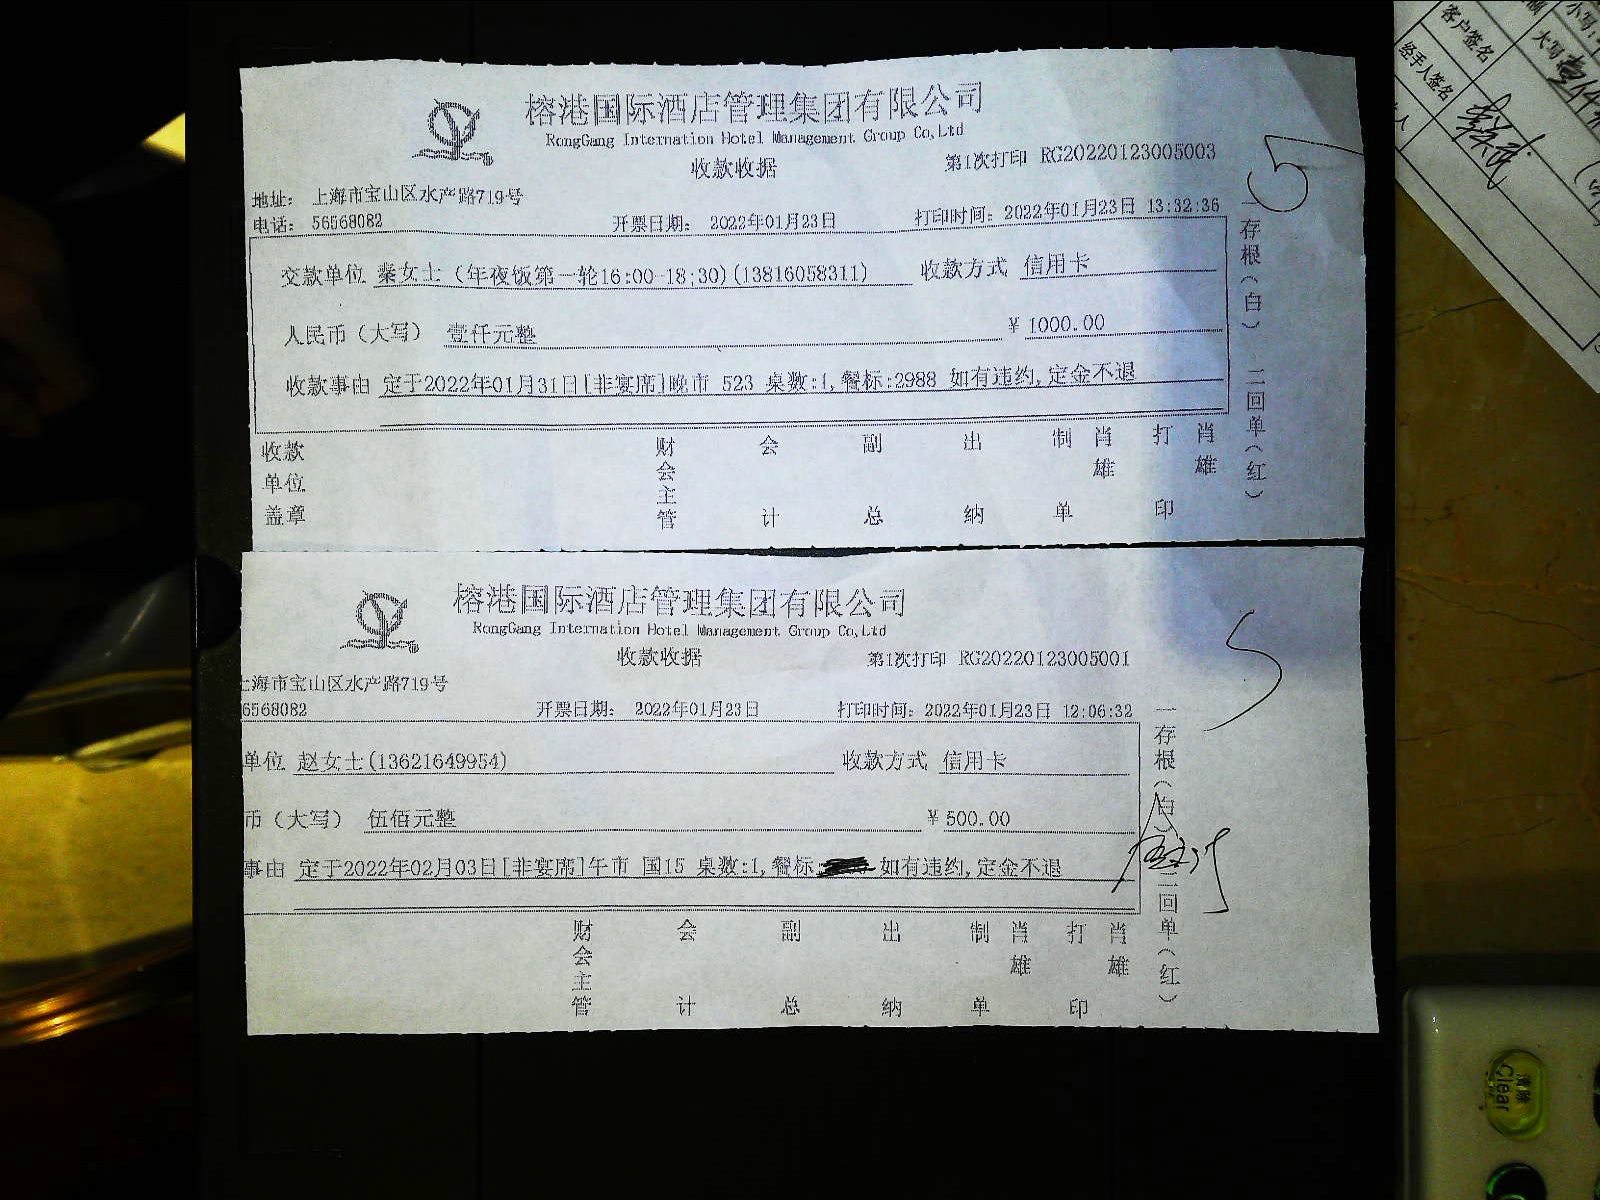 榕港国际酒店管理集团有限公司
RongGang Internation Hotel Management Group Co,Ltd
收款收据
第1次打印 RG20220123005003
地址: 上海市宝山区水产路719号
电话: 56568082
开票日期: 2022年01月23日
打印时间: 2022年01月23日 13:32:36
交款单位 秦女士（年夜饭第一轮16:00-18:30)(13816058311) 收款方式 信用卡
人民币（大写） 壹仟元整 ¥ 1000.00
收款事由 定于2022年01月31日[非宴席]晚市 523 桌数:1,餐标:2988 如有违约,定金不退
收款单位盖章
财会主管
会计
副总
出纳
制单
肖雄
打印
肖雄
一存根(白) 二回单(红)
5
榕港国际酒店管理集团有限公司
RongGang Internation Hotel Management Group Co,Ltd
收款收据
第1次打印 RG20220123005001
上海市宝山区水产路719号
6568082
开票日期: 2022年01月23日
打印时间: 2022年01月23日 12:06:32
单位 赵女士(13621649954) 收款方式 信用卡
币（大写） 伍佰元整 ¥ 500.00
事由 定于2022年02月03日[非宴席]午市 国15 桌数:1,餐标: 如有违约,定金不退
财会主管
会计
副总
出纳
制单
肖雄
打印
肖雄
一存根(白) 二回单(红)
5
小写:
大写
客户签名
经手人签名
人
清除
Clear